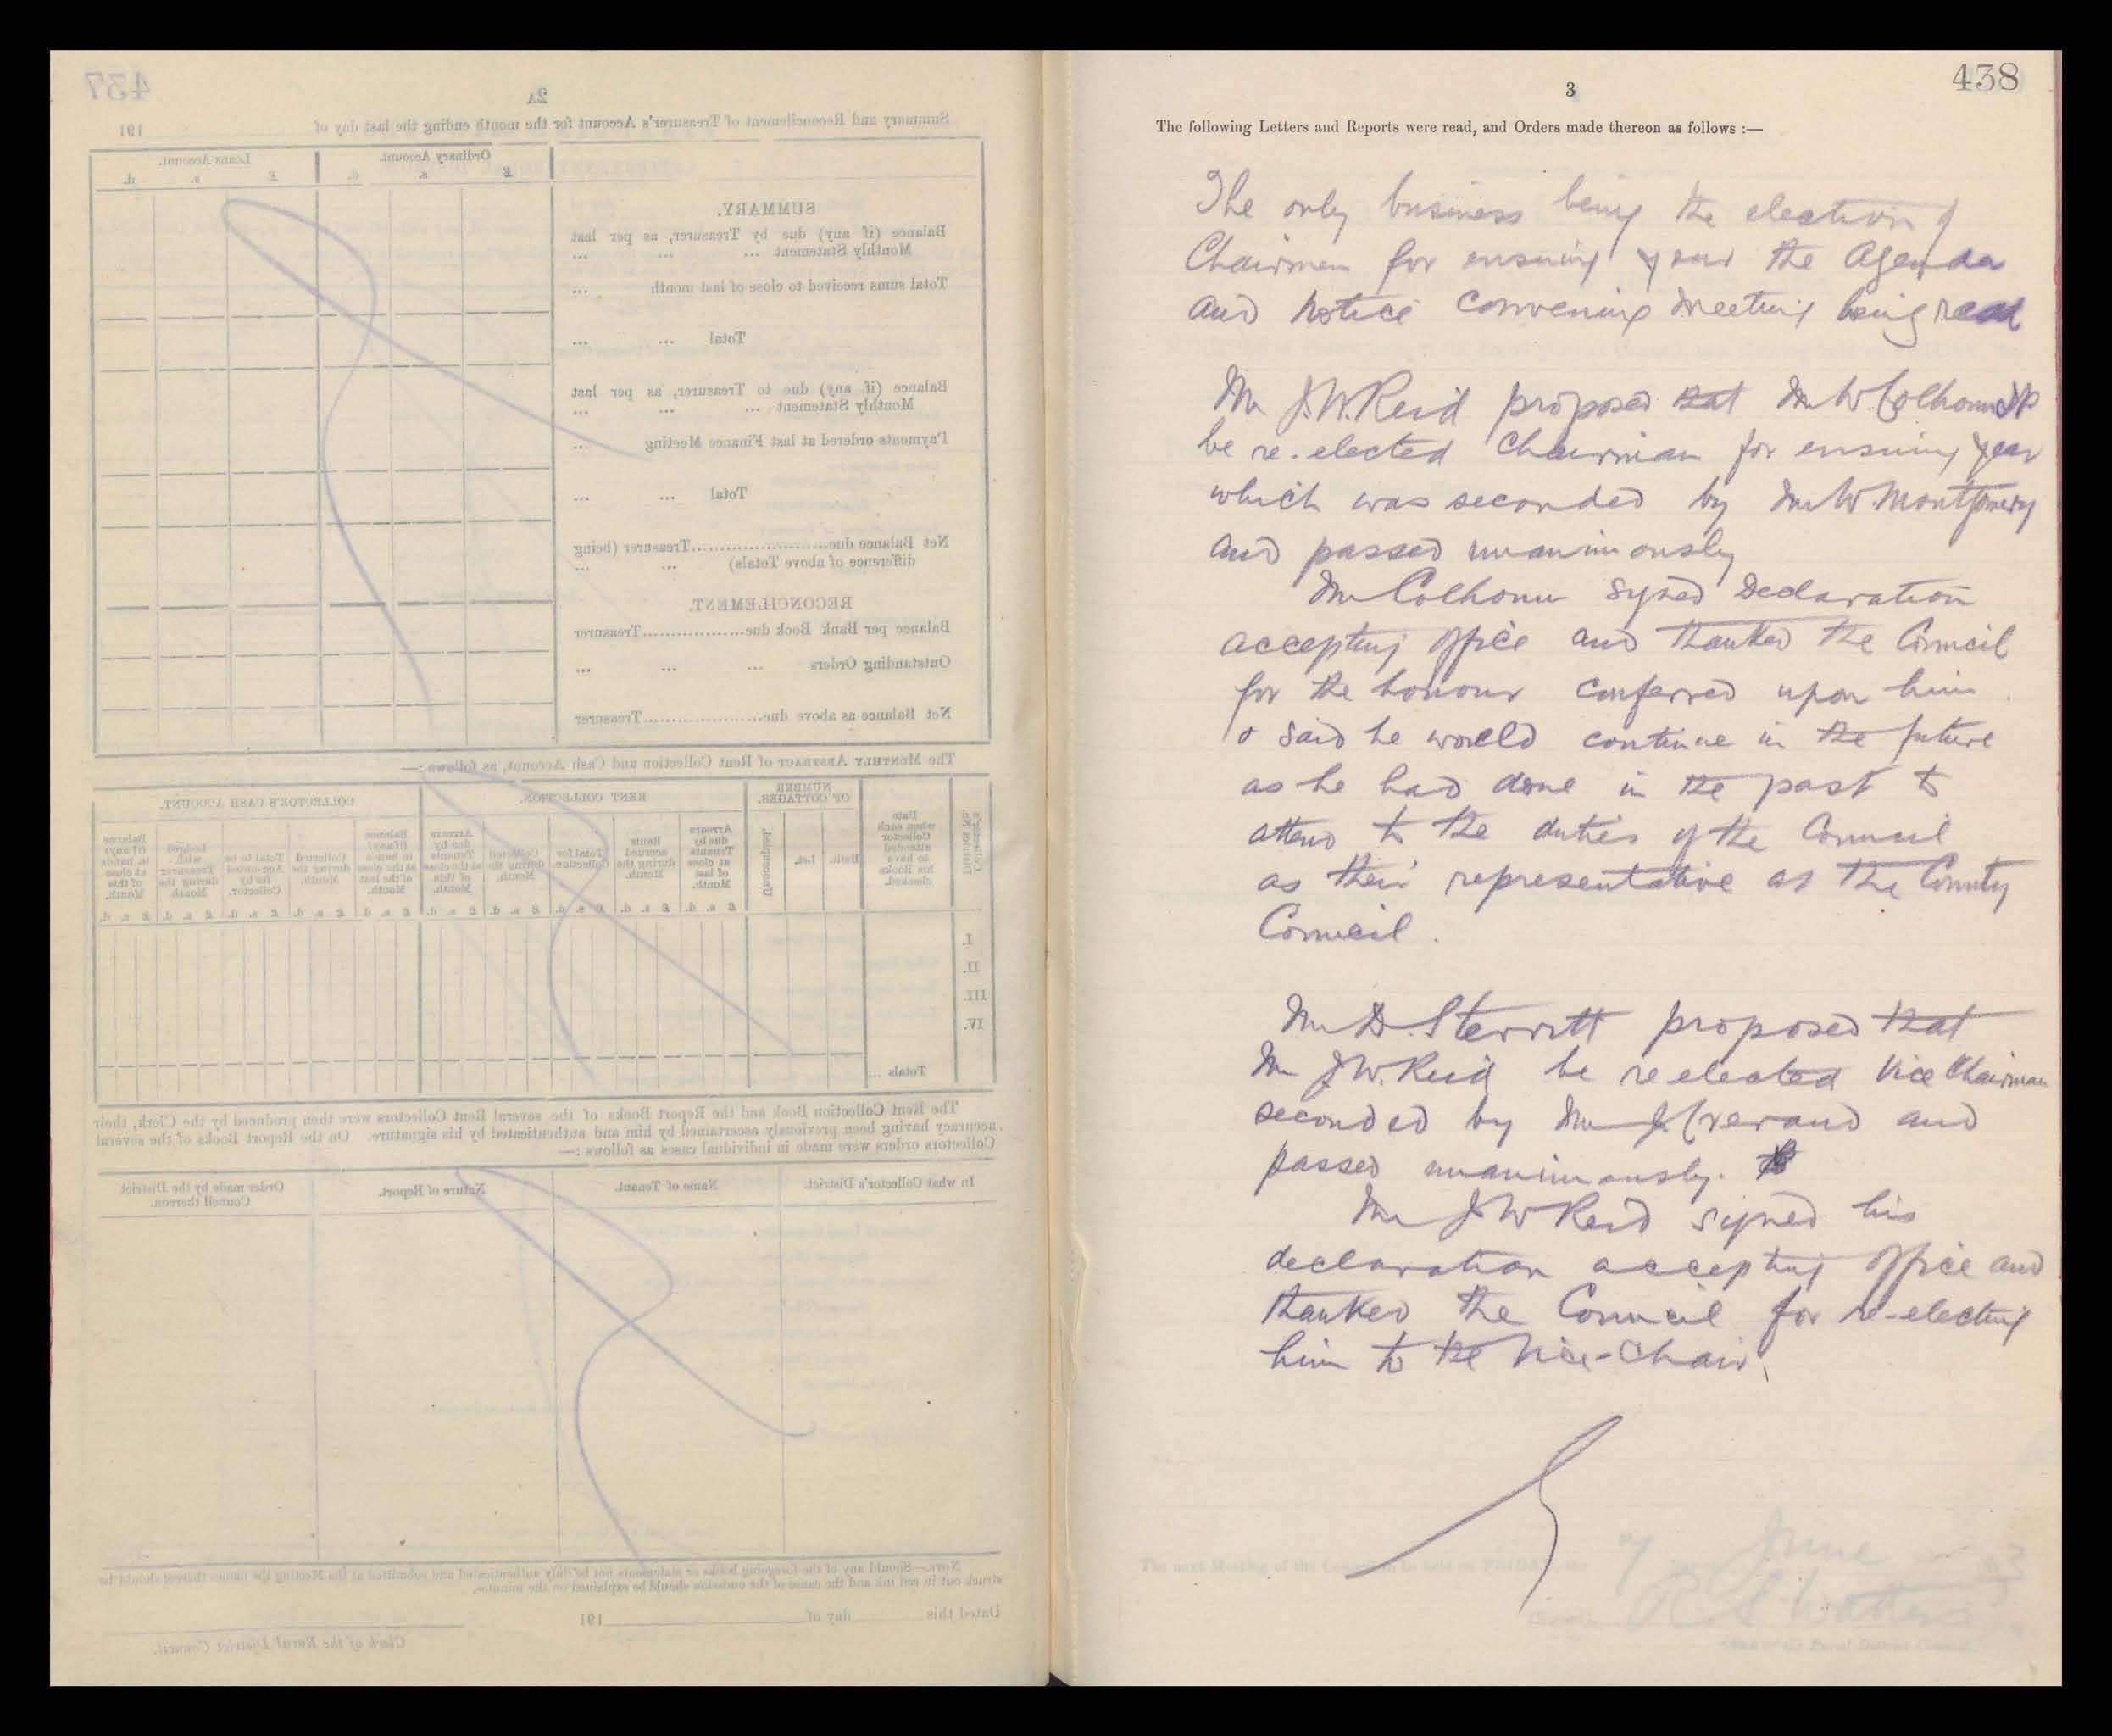 437
2A
Summary and Reconcilement of Treasurer's Account for the month ending the last day of 191
Ordinary Account. Loans Account.
£ s. d. £ s. d.
SUMMARY.
Balance (if any) due by Treasurer, as per last
Monthly Statement ... ... ...
Total sums received to close of last month ...
Total ... ...
Balance (if any) due to Treasurer, as per last
Monthly Statement ... ... ...
Payments ordered at last Finance Meeting ...
Total ... ...
Net Balance due Treasurer (being
difference of above Totals) ... ...
RECONCILEMENT.
Balance per Bank Book due Treasurer
Outstanding Orders ... ... ...
Net Balance as above due Treasurer
The MONTHLY ABSTRACT of Rent Collection and Cash Account, as follows:—
NUMBER OF COTTAGES. RENT COLLECTION. COLLECTOR'S CASH ACCOUNT.
Collector's District No.
Date when each Collector attended to have his Books checked.
Built. Let. Unoccupied.
Arrears due by Tenants at close of last Month.
Rents accrued during the Month.
Total for Collection.
Collected during the Month.
Arrears due by Tenants at the close of this Month.
Balance (if any) in hands at the close of the last Month.
Collected during the Month.
Total to be Accounted for by Collector.
Lodged with Treasurer during the Month.
Balance (if any) in hands at close of this Month.
£ s. d. £ s. d. £ s. d. £ s. d. £ s. d. £ s. d. £ s. d. £ s. d. £ s. d. £ s. d.
I.
II.
III.
IV.
Totals ...
The Rent Collection Book and the Report Books of the several Rent Collectors were then produced by the Clerk, their
accuracy having been previously ascertained by him and authenticated by his signature. On the Report Books of the several
Collectors orders were made in individual cases as follows:—
In what Collector's District. Name of Tenant. Nature of Report. Order made by the District
Council thereon.
NOTE.—Should any of the foregoing books or statements not be duly authenticated and submitted at the Meeting the names thereof should be
struck out in red ink and the cause of the omission should be explained on the minutes.
Dated this day of 191
Clerk of the Rural District Council.
438
3
The following Letters and Reports were read, and Orders made thereon as follows :—
The only business being the election of
Chairman for ensuing year the Agenda
and notice convening meeting being read
Mr J.W. Reid proposed that Mr W Colhoun JP
be re-elected Chairman for ensuing year
which was seconded by Mr W Montgomery
and passed unanimously
Mr Colhoun signed Declaration
accepting office and thanked the Council
for the honour conferred upon him
& said he would continue in the future
as he had done in the past to
attend to the duties of the Council
as their representative at the County
Council.
Mr D. Sterritt proposed that
Mr J.W. Reid be re elected Vice Chairman
seconded by Mr and
passed unanimously.
Mr J W Reid signed his
declaration accepting office and
thanked the Council for re-electing
him to the Vice-Chair.